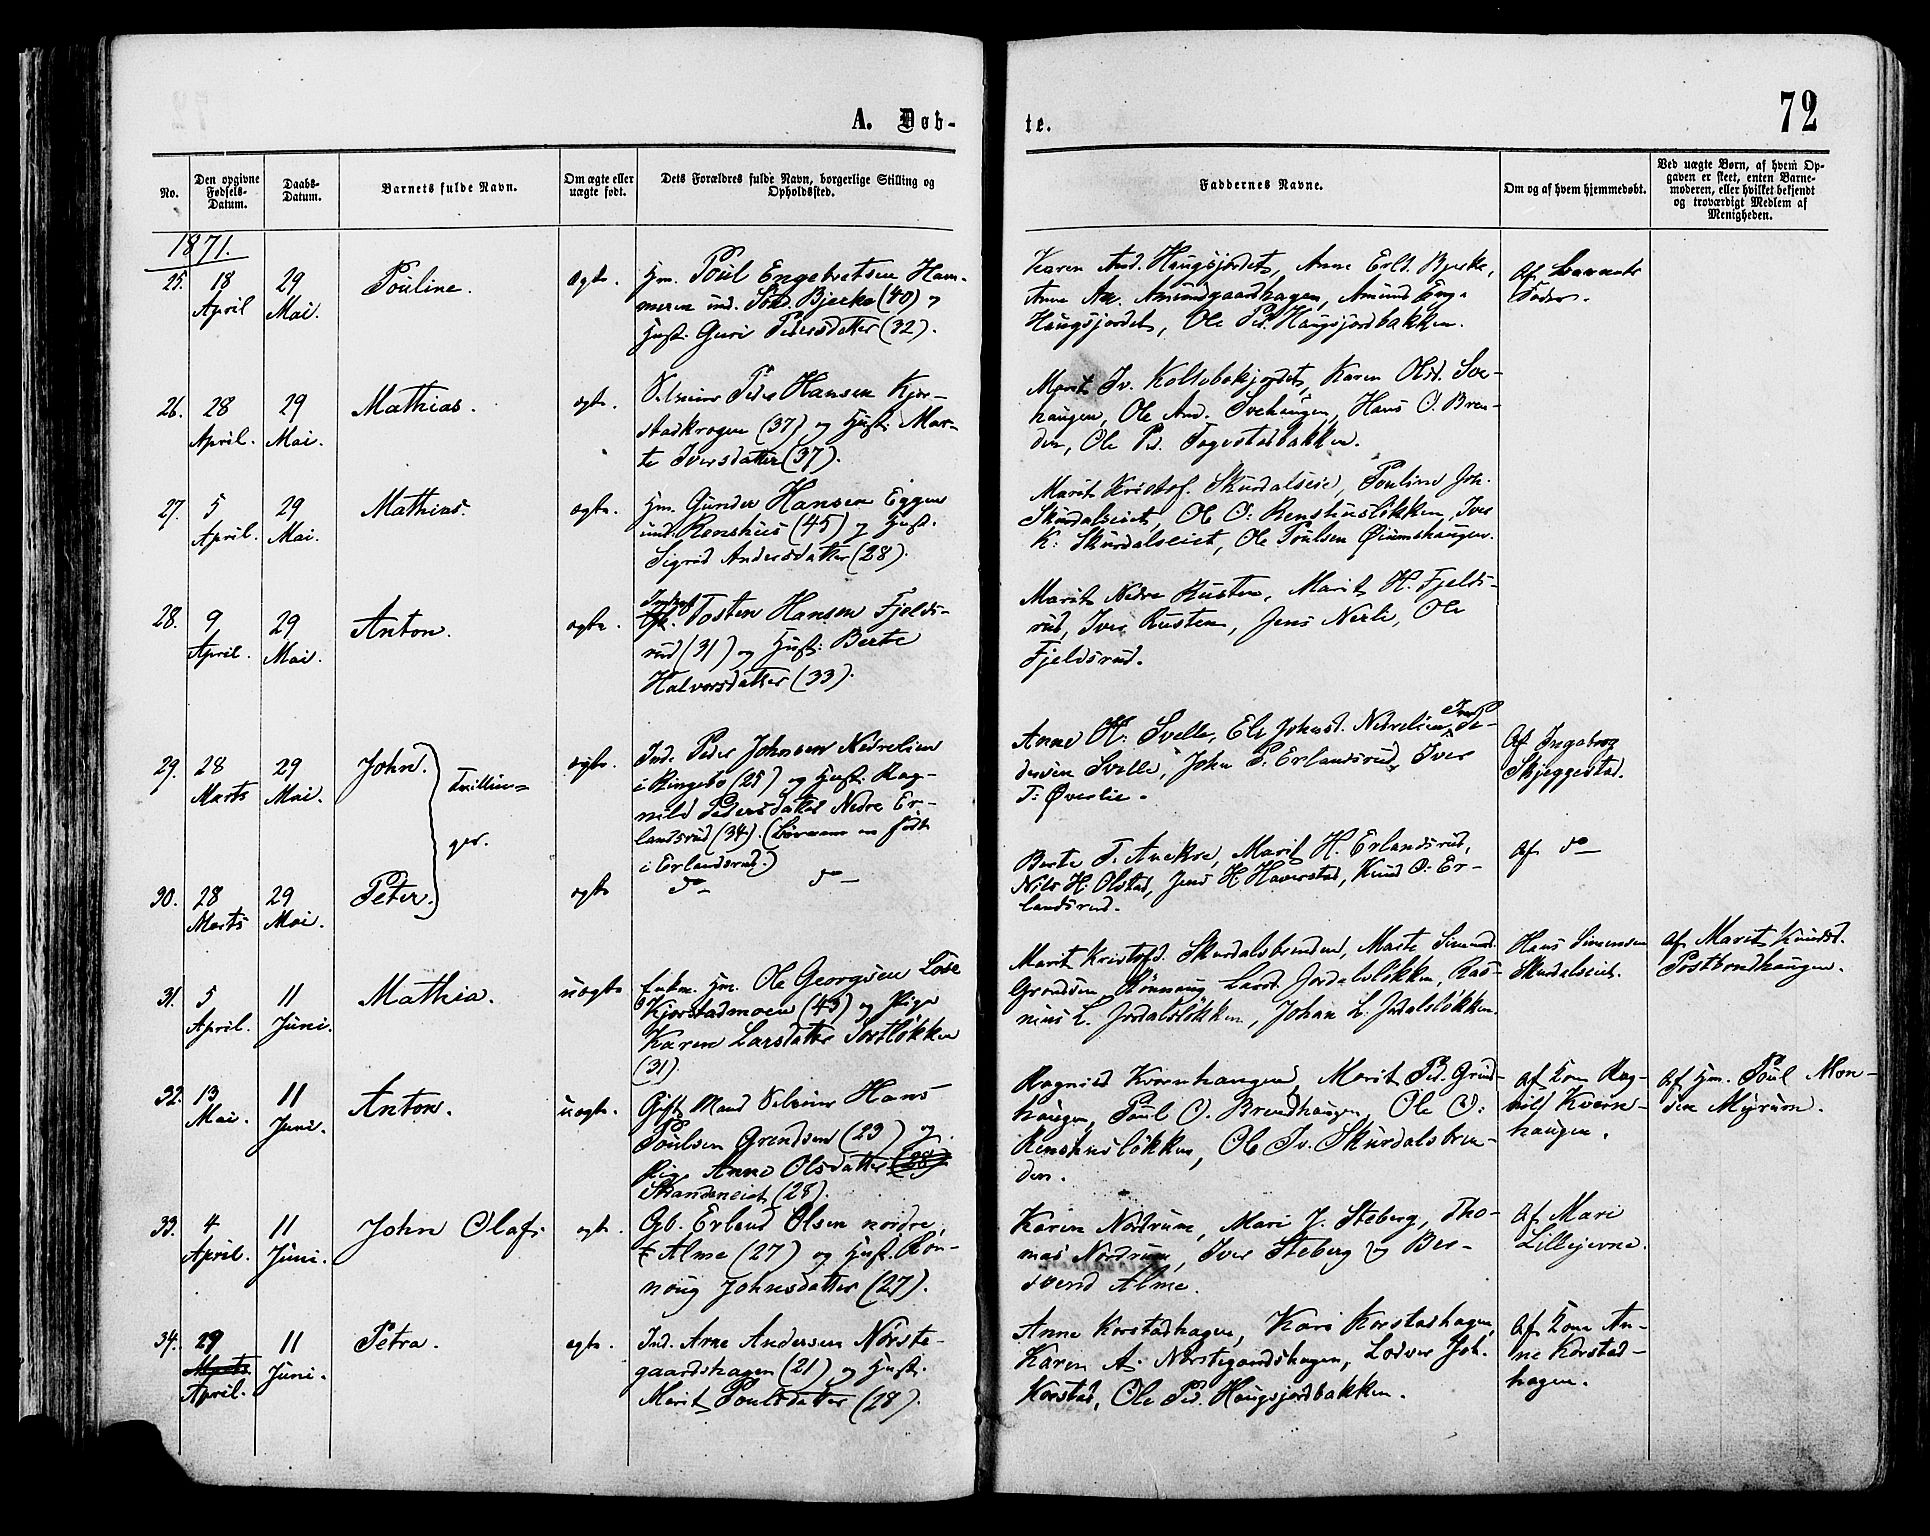 72
A. Døb-
te.
No.
Den opgivne Fødsels-Datum.
Daabs-Datum.
Barnets fulde Navn.
Om ægte eller uægte født.
Dets Forældres fulde Navn, borgerlige Stilling og Opholdssted.
Faddernes Navne.
Om og af hvem hjemmedøbt.
Ved uægte Børn, af hvem Opgaven er skeet, enten Barnemoderen, eller hvilket bekjendt og troværdigt Medlem af Menigheden.
1871.
25. 18 April 29 Mai. Pouline. ægte.
Hm. Poul Engebretsen Ham-
meren ind. Bjerke (40) og
Hust. Guri Pedersdatter (32).
Karen And. Haugsjordet, Anne Erld. Bjerke,
Anne An. Amundgaardhagen, Amund Eng.
Haugsjordet, Ole Pd. Haugsjordbakken.
Af Barnets
Fader.
26. 28 April. 29 Mai. Mathias. ægte.
Selveier Peder Hansen Kjor-
stadkrogen (37) og Hust. Mar-
te Iversdatter (37).
Marit Iv. Kolsbakjordet, Karen Olsd. Sve-
haugen, Ole And. Svehaugen, Hans O. Bren-
den, Ole Pd. Fagestadbakken.
27. 5 April. 29 Mai. Mathias. ægte.
Hm. Gunder Hansen Eggen
und. Renshus (45) og Hust.
Sigrid Andersdatter (28).
Marit Kristof. Skurdalseie, Pouline Joh.
Skurdalseiet, Ole O. Renshusløkken, Iver
K. Skurdalseiet, Ole Poulsen Øiumshaugen.
28. 9 April. 29 Mai. Anton. ægte.
Tosten Hansen Fjelds-
rud (31) og Hust: Berte
Halvorsdatter (33).
Marit Nedre Rusten, Marit H. Fjelds-
rud, Iver Rusten, Jens Nerli, Ole
Fjeldsrud.
29. 28 Marts 29 Mai. John. Tvillin-
ger. ægte.
Ind. Peder Johnsen Nedrelien
i Ringebo (25) og Hust. Rag-
nild Pedersdatter Nedre Er-
landsrud (34). (Børnene er født
i Erlandsrud.)
Anne H. Svelle, Eli Johnsd. Nedrelien, Iver Pe-
dersen Svelle, John P. Erlandsrud, Iver
T. Øverlie.
Af Ingeborg
Skjeggestad.
30. 28 Marts 29 Mai. Peter. ægte
do do
Berte T. , Marit H. Erlandsrud,
Nils H. Olstad, Jens H. Haverstad, Knud O. Er-
landsrud.
Af do
31. 5 April. 11 Juni. Mathia. uægte
Enkm. Hm. Ole Georgsen Løse
Kjorstadmoen (43) og Pige
Karen Larsdatter Jortløkken
(31).
Marit Kristofd. Skurdalsbrenden, Marte Simensd.
Grondsen, Rønnaug Larsd. Jordalsløkken, Ras-
mus L. Jordalsløkken, Johan L. Jordalsløkken.
Hans Simensen
Skurdalseiet.
Af Marit Knudsd.
Postbondhaugen.
32. 13 Mai. 11 Juni. Anton. uægte.
Gift Mand Selveier Hans
Poulsen Grendsen (29) og
Pige Anne Olsdatter (28)
(28).
Ragnild Kvernhaugen, Marit Pd. Grind-
haugen, Poul O. Brendhaugen, Ole O.
Renshusløkken, Ole Iv. Skurdalsbren-
den.
Af Kone Rag-
nild Kvern-
haugen.
Af Hm. Poul Mon-
sen Myrum.
33. 4 April. 11 Juni. John Olaf. ægte.
Gb. Erland Olsen nordre
Alme (27) og Hust. Røn-
noug Johnsdatter (27).
Karen Nordrum, Mari J. Steberg, Tho-
mas Nordrum, Iver Steberg og Ber-
svend Alme.
Af Mari
Lillejevne.
34. 29 Marts April. 11 Juni. Petra. ægte.
Ind. Arne Andersen Norste-
gaardshagen (21) og Hust.
Marit Poulsdatter (28).
Anne Korstadhagen, Kari Korstadhagen,
Karen A. Norstegaardshagen, Lodver Joh.
Korstad, Ole Pd. Haugsjordbakken.
Af Kone An-
ne Korstad-
hagen.